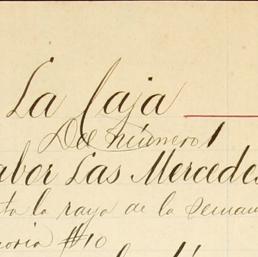 La Caja
De número 1
abor Las Mercedes
ta la raya de la semana
moria #10